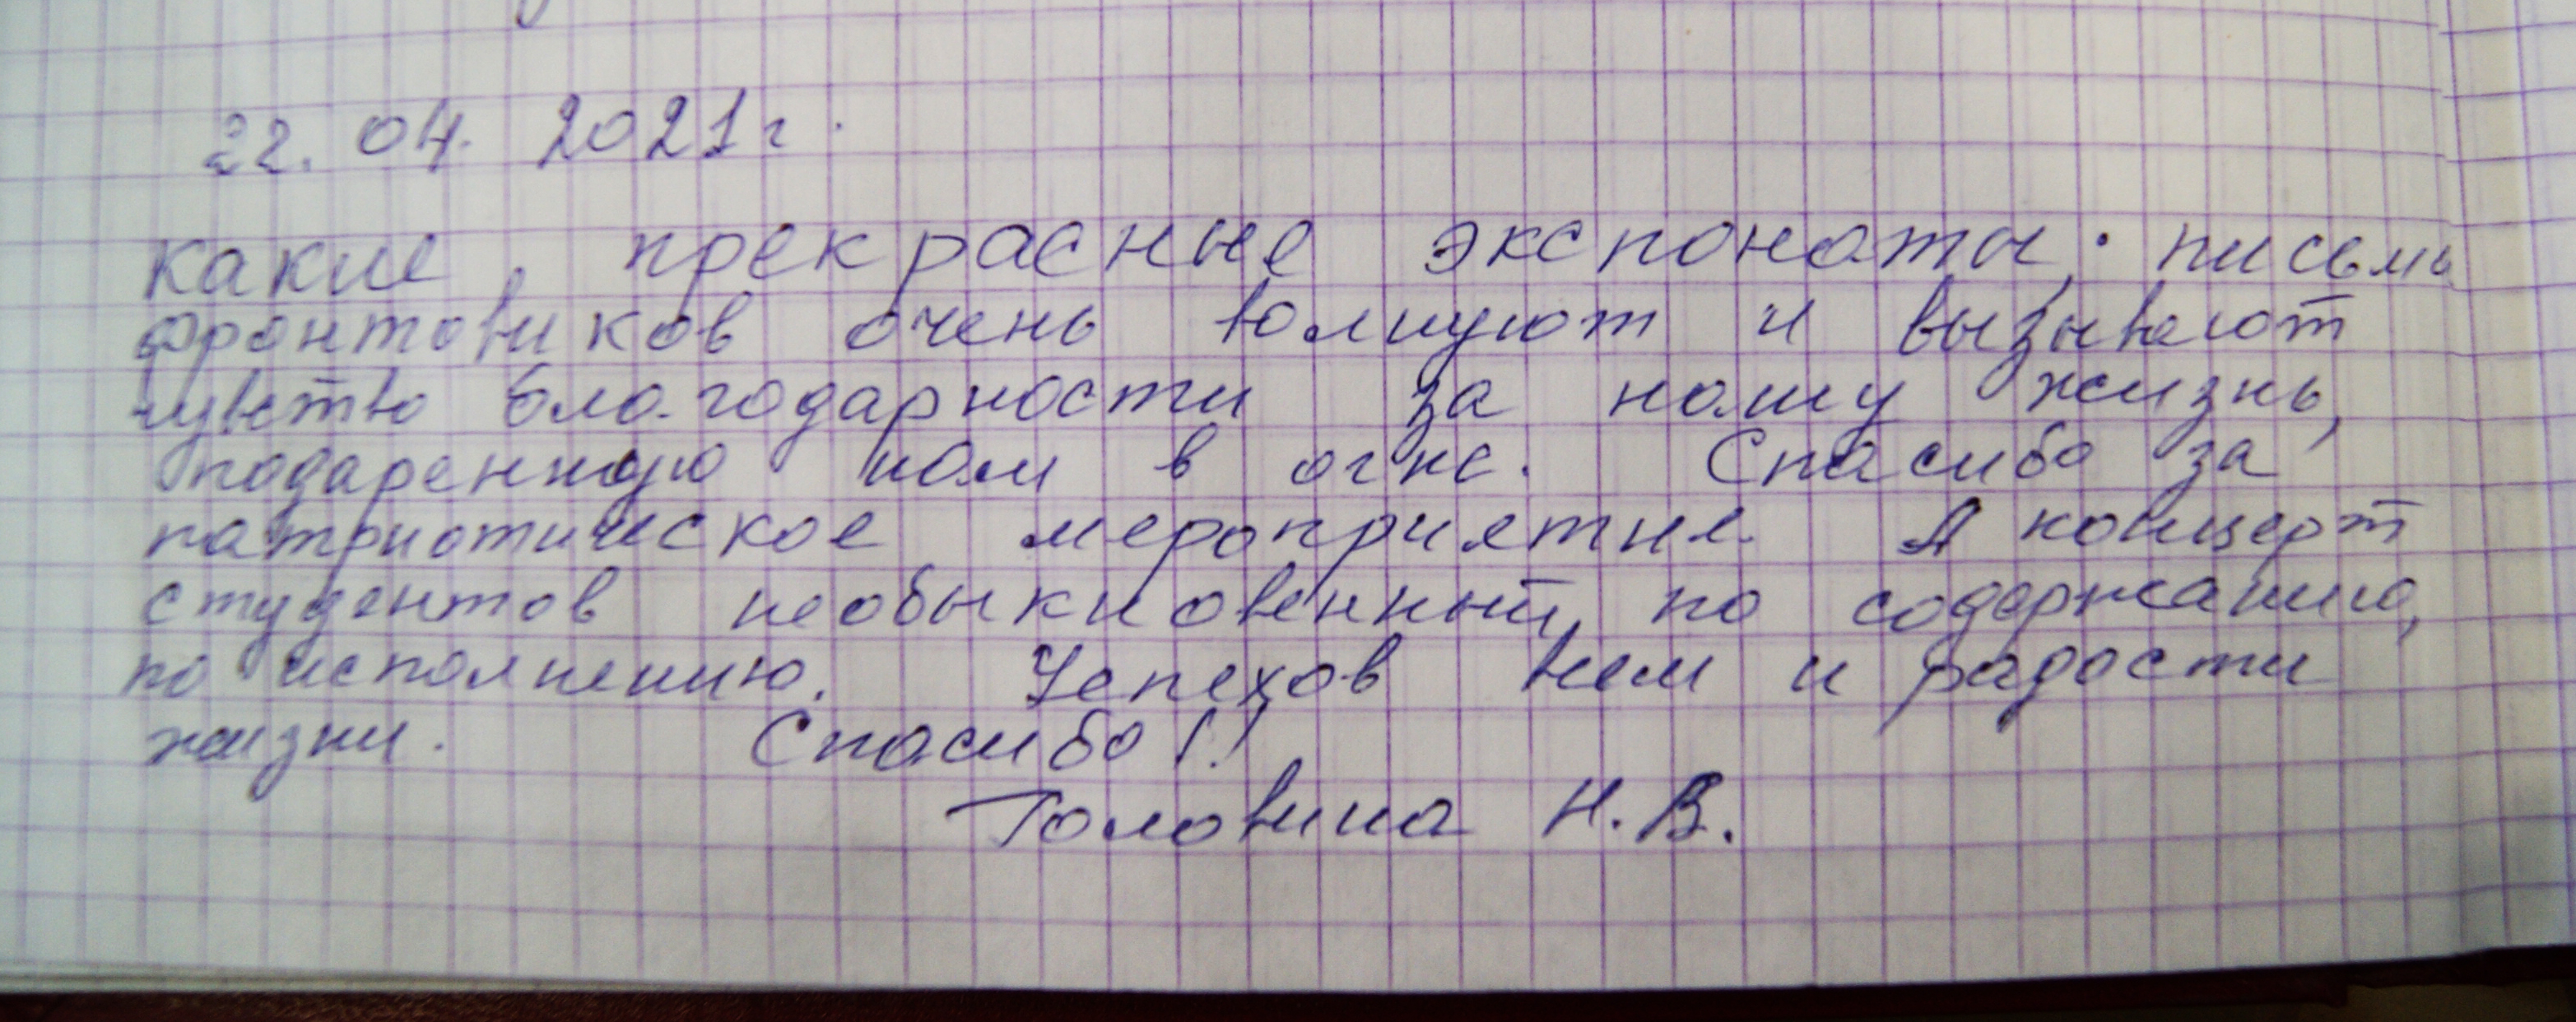 22. 04. 2021 г.
Какие прекрасные экспонаты. письма
фронтовиков очень волнуют и вызывают
чувство благодарности за нашу жизнь,
подаренную нам в огне. Спасибо за
патриотическое мероприятие. А концерт
студентов необыкновенный, по содержанию,
по исполнению. Успехов всем и радости
жизни. Спасибо!!
Головина Н. В.